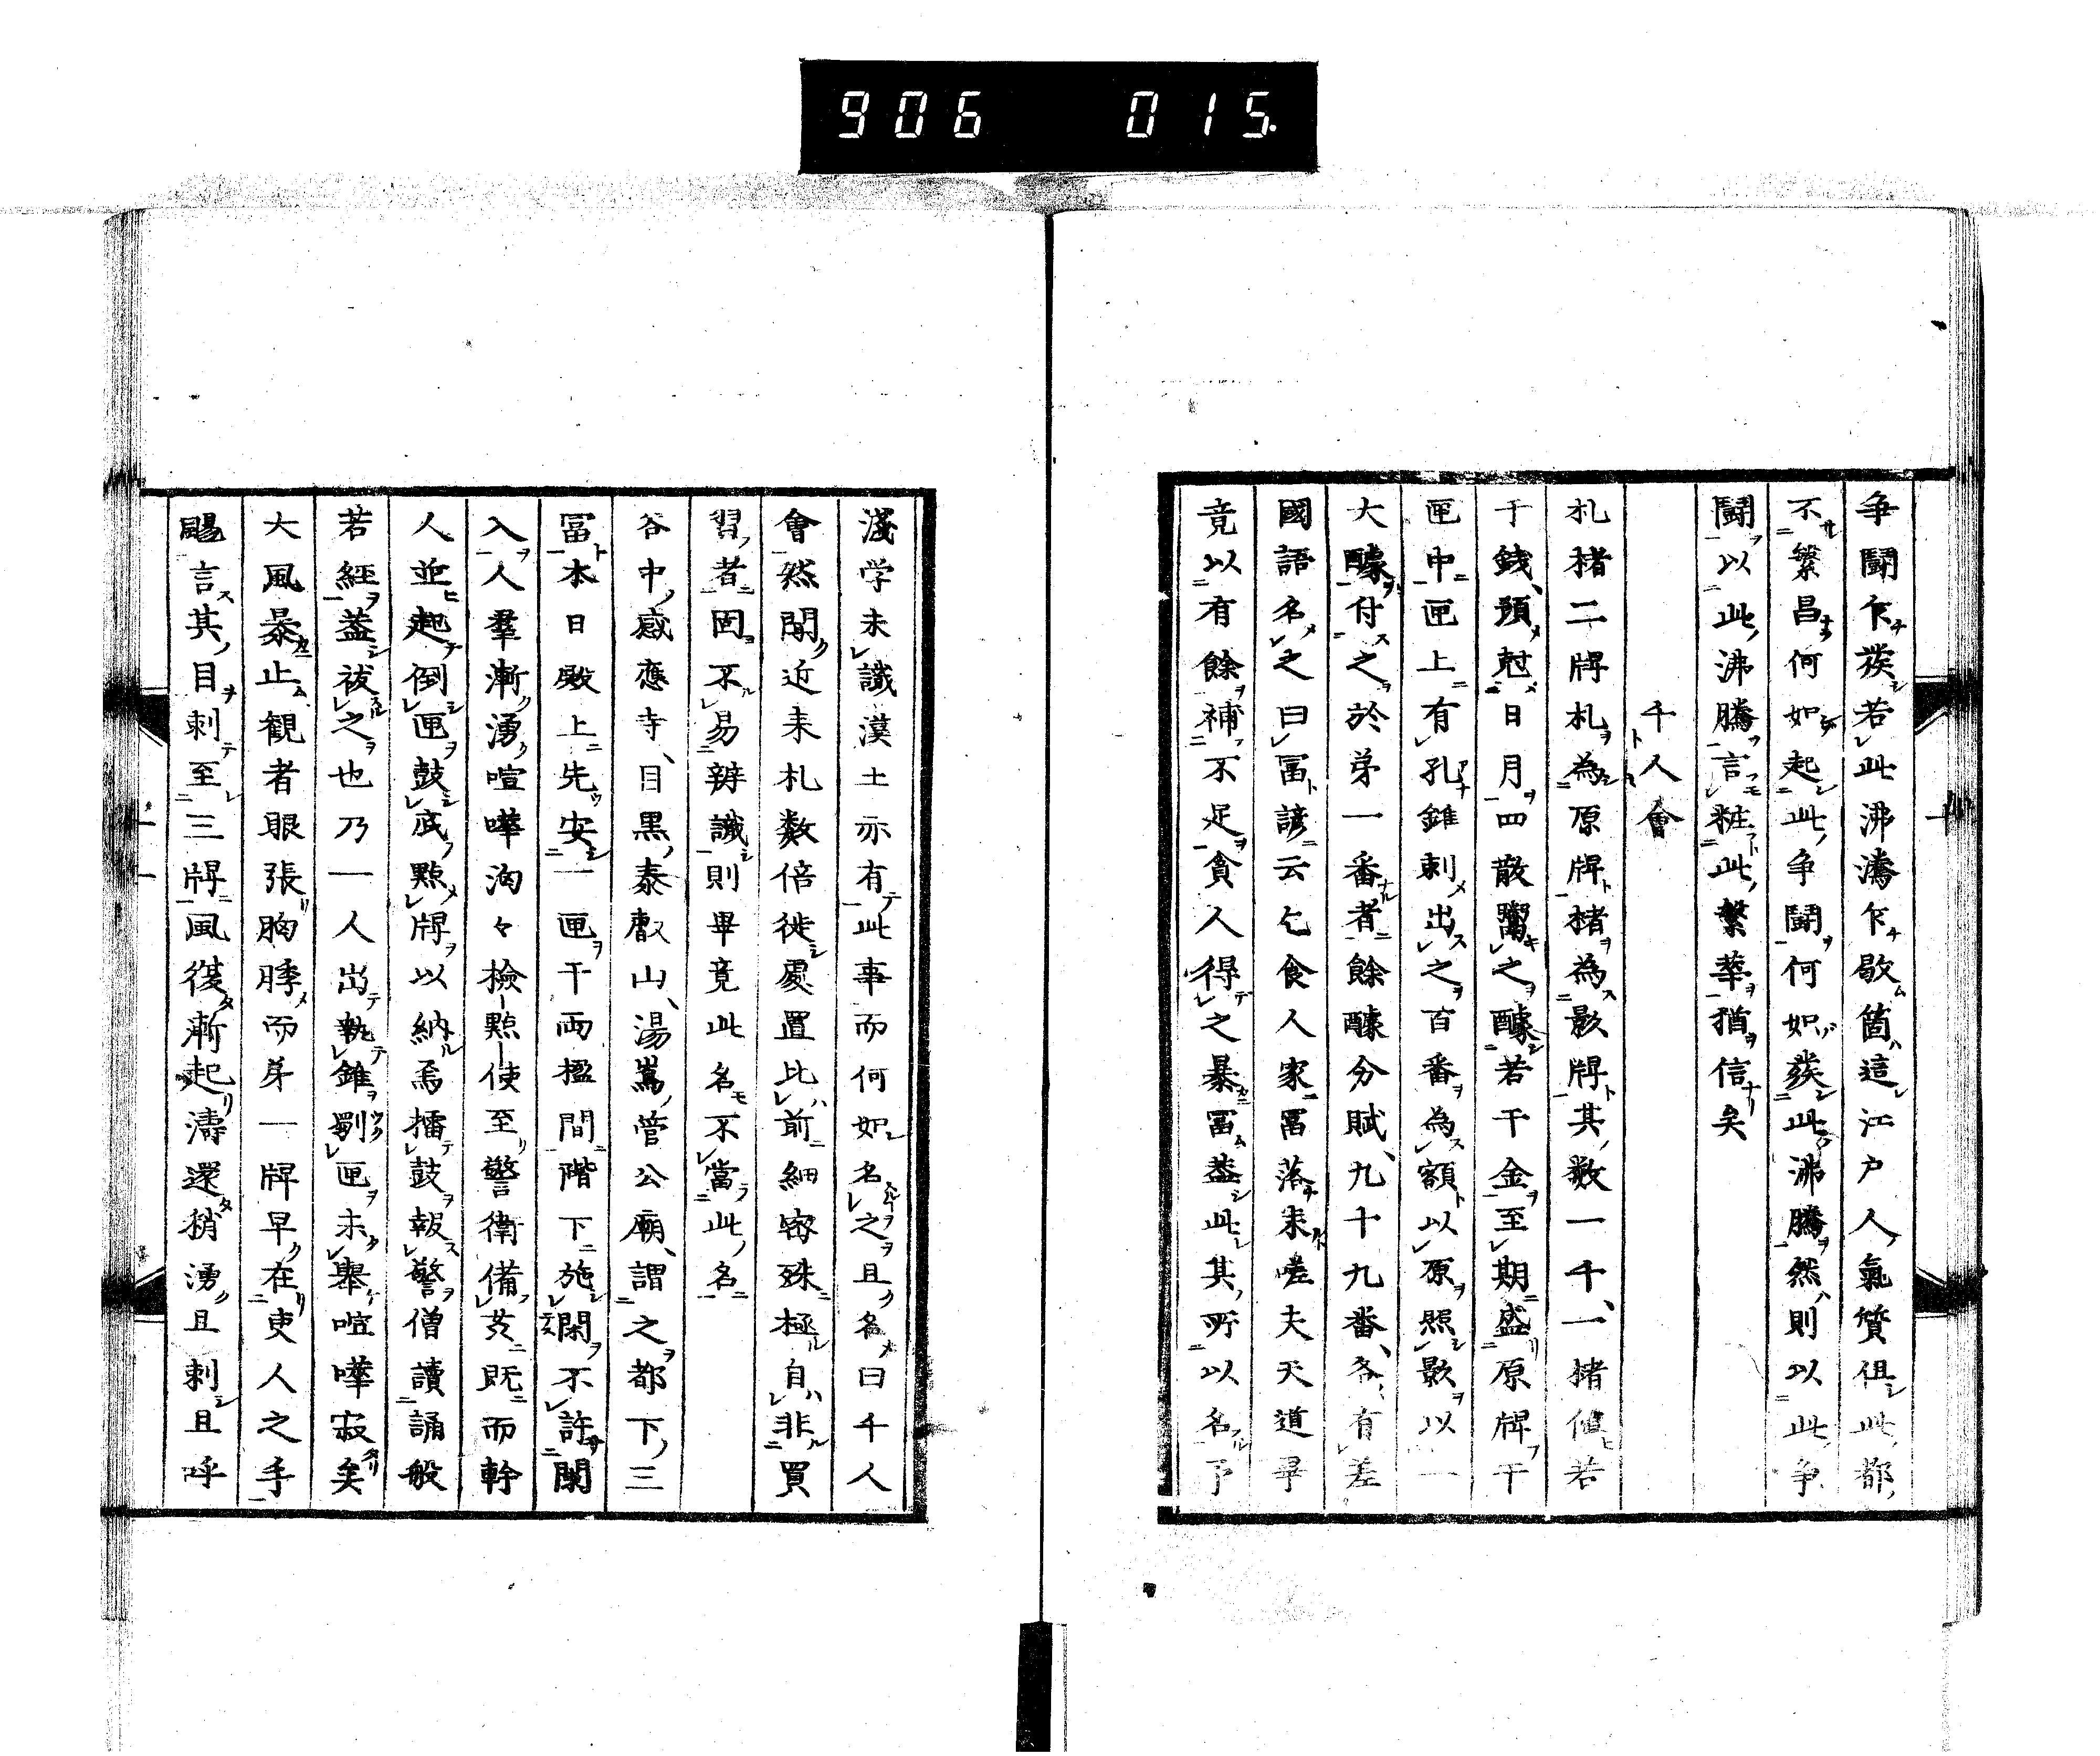 906 015.
争鬪乍蕟若此沸騰乍歇箇這江戸人氣質但此都
不繁昌何如起此争鬪何如蕟此沸騰然則以此争
鬪以此沸騰言粧此繁華猶信矣
千人會
札楮二牌札為原牌楮為影牌其数一千一楮値若
干銭預尅日月四散鬻之醵若干金至期盛原牌于
匣中匣上有孔錐刺出之百番為額以原照影以一
大醵付之於弟一番者餘醵分賦九十九番各有差
國語名之曰冨諺云乞食人家冨落来嗟夫天道畢
竟以有餘補不足貪人得之暴冨葢此其所以名予
淺学未識漢土亦有此事而何如名之且名曰千人
會然聞近来札数倍徙處置比前細密殊極自非買
習者固不易辨識則畢竟此名不當此名
谷中感應寺目黒泰叡山湯嶌管公廟謂之都下三
冨本日殿上先安一匣于両楹間階下施閑不許闌
入人羣漸湧喧嘩洶々檢點使至警衛備焉既而幹
人並起倒匣鼓底點牌以納焉擂鼓報警僧讀誦般
若經葢祓之也乃一人出執錐剟匣未舉喧嘩寂矣
大風暴止観者眼張胸悸而弟一牌早在吏人之手
颺言其目刺至三牌風復漸起濤還稍湧且刺且呼